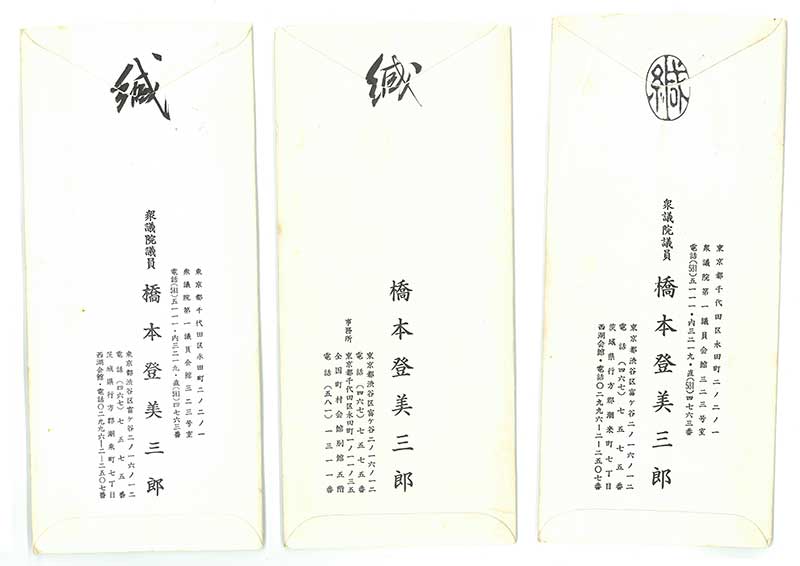 緘
東京都千代田区永田町二ノ二ノ一
衆議院第一議員会館三二三号室
電話(581)五一一一・内三二一九・直(581)四七六三番
衆議院議員 橋本登美三郎
東京都渋谷区富ケ谷二ノ一六ノ一二
電話(四六七)七五七五番
茨城県行方郡潮来町七丁目
西湖会館・電話〇二九九六ー二ー二五〇七番
緘
橋本登美三郎
東京都渋谷区富ケ谷二ノ一六ノ一二
電話(四六七)七五七五番
事務所 東京都千代田区永田町一ノ一一ノ三五
全国町村会館別館五階
電話(五八一)一三一一番
緘
東京都千代田区永田町二ノ二ノ一
衆議院第一議員会館三二三号室
電話(581)五一一一・内三二一九・直(581)四七六三番
衆議院議員 橋本登美三郎
東京都渋谷区富ケ谷二ノ一六ノ一二
電話(四六七)七五七五番
茨城県行方郡潮来町七丁目
西湖会館・電話〇二九九六ー二ー二五〇七番